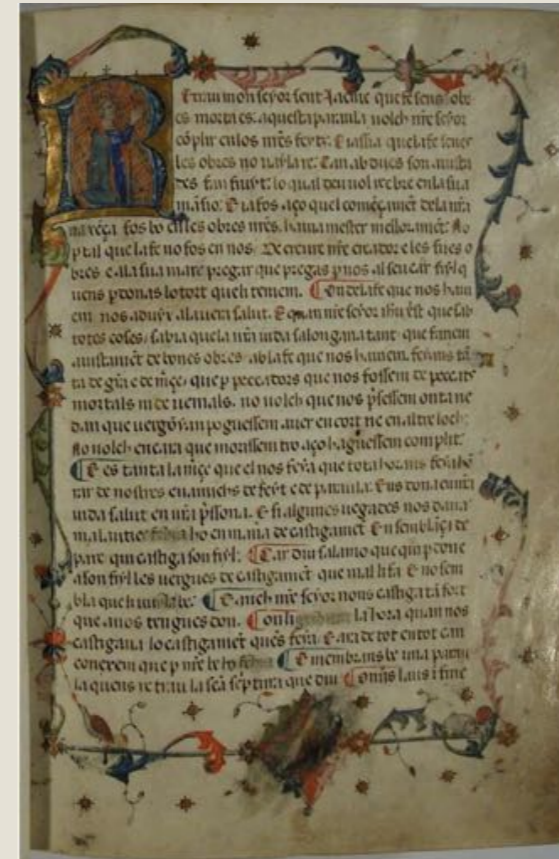 Retrau mon senyor sent Jacme que fe sens obr
es morta es: aquesta paraula volch nre senyor
cōplir en los nr̄es feyts. E ia sia que la fe senes
les obres no vayla re: Can abdues son aiusta
des fan fruyt: lo qual deu vol reebre en la sua
māsio. E ia fos aço quel començamēt de la nr̄a
naxēça fos bo en les obres nr̄es. hauia mester melloramēt: No
p tal que la fe no fos en nos. De creure nr̄e creador e les sues o
bres e a la sua mare pregar que pregas p nos al seu car fiyl q
uens pdonas lo tort queli teniem. On de la fe que nos hauí
em nos aduyx a la uera salut. E quan nr̄e senyor ihū xp̄st que sab
totes coses. sabia que la nr̄a uida salongaria tant que fariem
aiustamēt de bones obres ab la fe que nos hauiem. feyans tā
ta de grā e de mc̄e. que p peccadors que nos fossem de peccats
mortals ni de uenials. no volch que nos p̄sessem onta ne
dan que uergōya n poguessem auer en cort ne en altre loch:
No volch encara que morissem tro aço haguessem complit:
E es tanta la mc̄e que el nos feya que tota hora ns feya hō
rar de nostres enamichs de feyt e de paraula. E ns dona en nr̄a
uida salut en nr̄a p̄ssona. E si algunes uegades nos daua
malauties ho en mania de castigamēt. En semblāça de
pare qui castiga son fiyl: Car diu salamo que qui pdone
a son fiyl les uergues de castigamēt que mal li fa. E no sem
bla que li E anch nr̄e senyor nons castiga tā fort
que a nos tengues dan. On li la hora quan nos
castigaua lo castigamēt quens feya. E ara de tot en tot can
conexem que p nr̄e be ho E membrans be una parau
la quens retrau la scā sc̄ptura que diu Om̄is laus ī fine